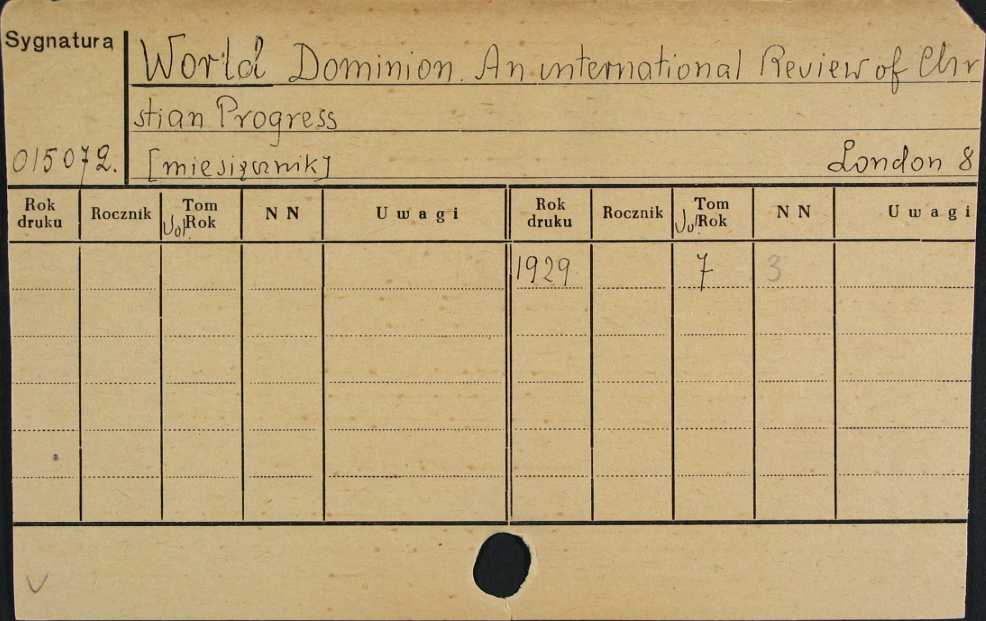 Sygnatura
World Dominion. An international Review of Chr
stian Progress
015072. [miesięcznik] London 8
Rok druku Rocznik Tom Vol Rok N N Uwagi Rok druku Rocznik Tom Vol Rok N N Uwagi
1929 7 3